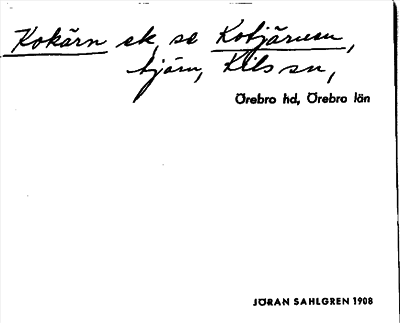 Kokärn ek, se Kotjärnen,
tjärn, Kils sn,
Örebro hd, Örebro län
JÖRAN SAHLGREN 1908